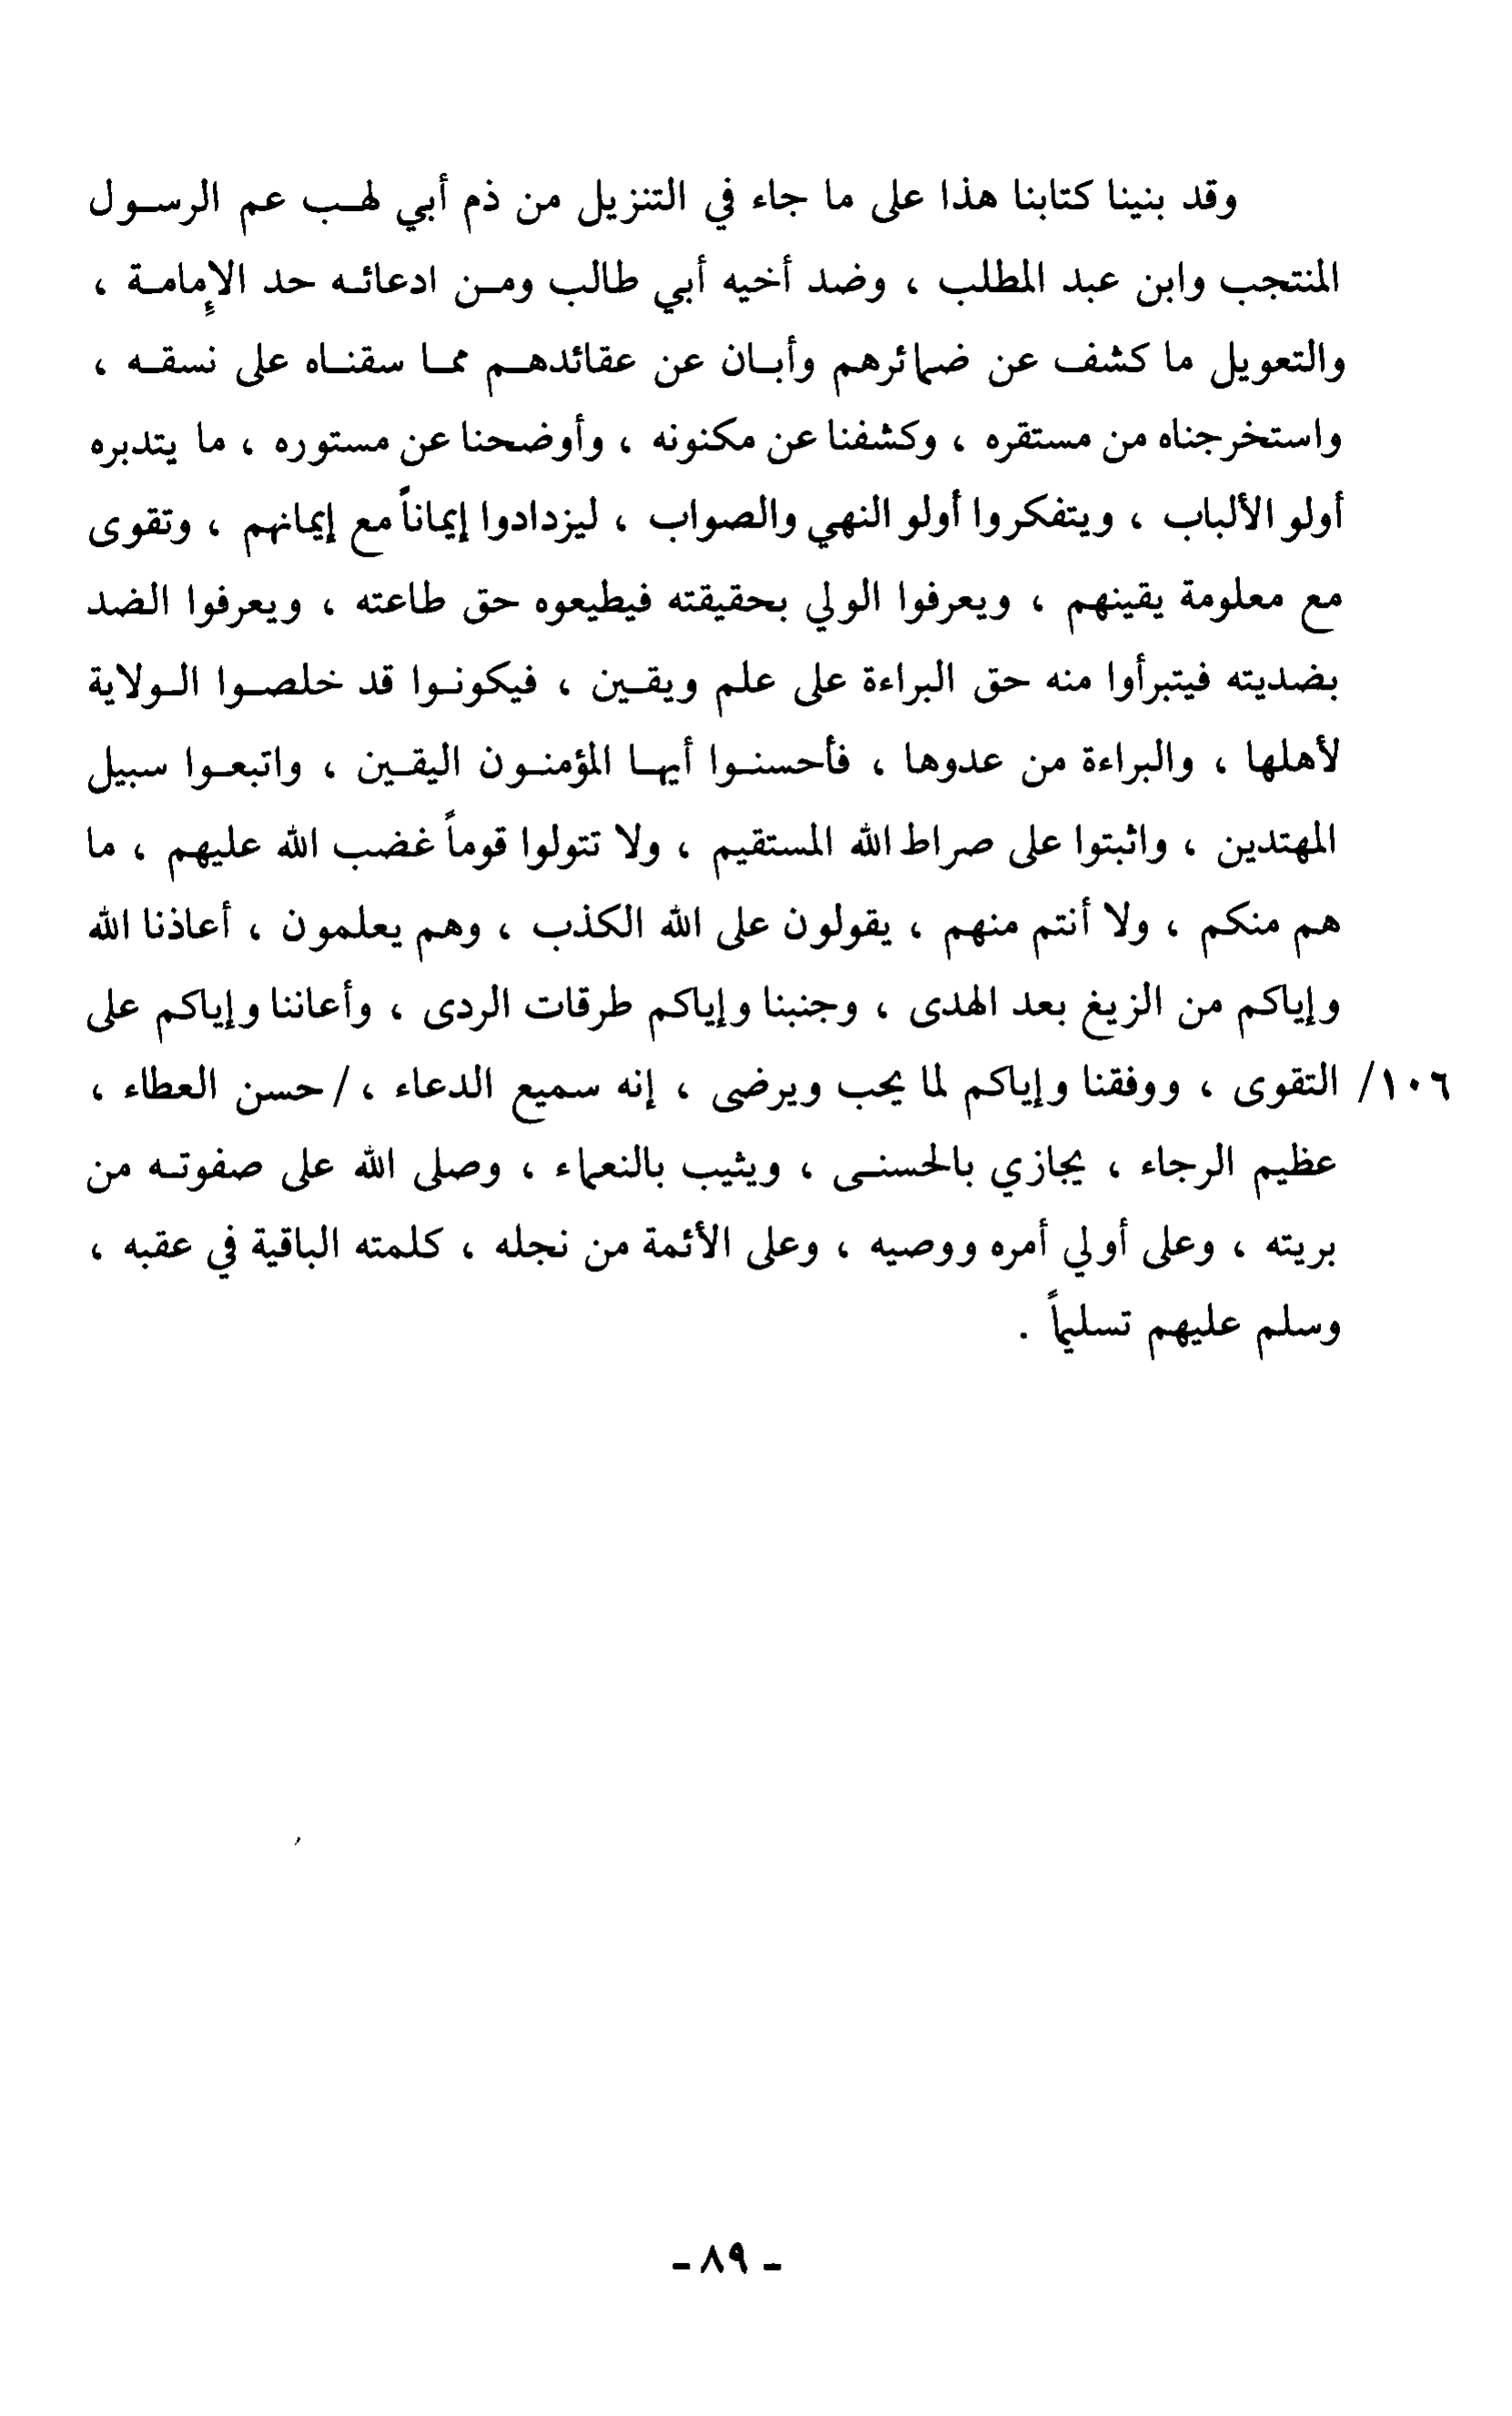 وقد بنينا كتابنا هذا على ما جاء في التنزيل من ذم أبي لهب عم الرسول
المنتجب وابن عبد المطلب ، وضد أخيه أبي طالب ومن ادعائه حد الإمامة ،
والتعويل ما كشف عن ضمائرهم وأبان عن عقائدهم مما سقناه على نسقه ،
واستخرجناه من مستقره ، وكشفنا عن مكنونه ، وأوضحنا عن مستوره ، ما يتدبره
أولو الألباب ، ويتفكروا أولو النهي والصواب ، ليزدادوا إيماناً مع إيمانهم ، وتقوى
مع معلومة يقينهم ، ويعرفوا الولي بحقيقته فيطيعوه حق طاعته ، ويعرفوا الضد
بضديته فيتبرأوا منه حق البراءة على علم ويقين ، فيكونوا قد خلصوا الولاية
لأهلها ، والبراءة من عدوها ، فأحسنوا أيها المؤمنون اليقين ، واتبعوا سبيل
المهتدين ، واثبتوا على صراط الله المستقيم ، ولا تتولوا قوماً غضب الله عليهم ، ما
هم منكم ، ولا أنتم منهم ، يقولون على الله الكذب ، وهم يعلمون ، أعاذنا الله
وإياكم من الزيغ بعد الهدى ، وجنبنا وإياكم طرقات الردى ، وأعاننا وإياكم على
١٠٦/ التقوى ، ووفقنا وإياكم لما يحب ويرضى ، إنه سميع الدعاء ،/ حسن العطاء ،
عظيم الرجاء ، يجازي بالحسنى ، ويثيب بالنعماء ، وصلى الله على صفوته من
بريته ، وعلى أولي أمره ووصيه ، وعلى الأئمة من نجله ، كلمته الباقية في عقبه ،
وسلم عليهم تسليماً .
- ٨٩ -